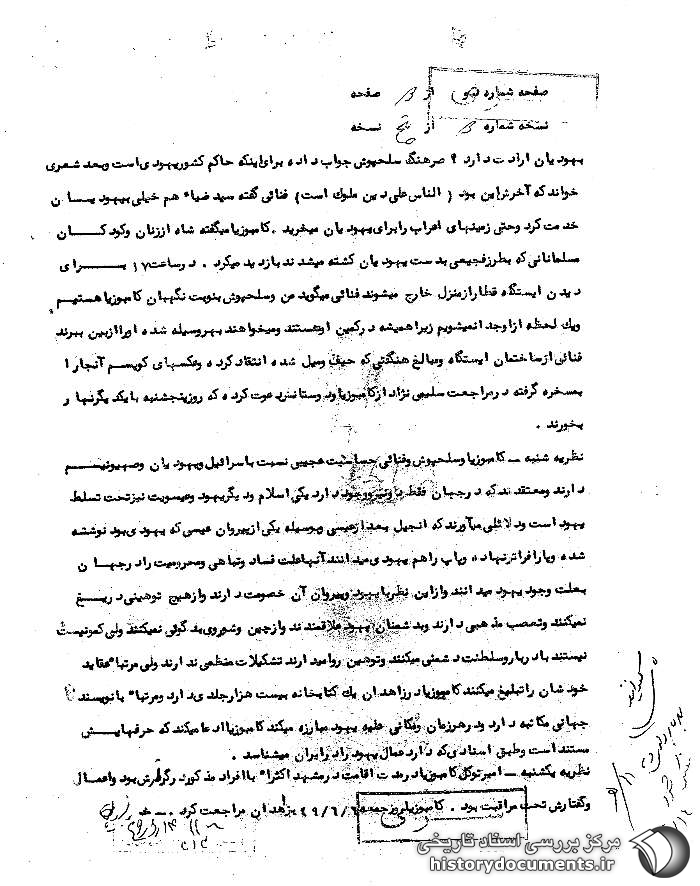 صفحه شماره از صفحه
نسخه شماره از پنج نسخه
یهودیان ارادت دارد ؟ سرهنگ سلحپوش جواب داده برای اینکه حاکم کشور یهودی است وبعد شعری
خواند که آخرش این بود (الناس علی دین ملوک است) فنائی گفته سید ضیاء هم خیلی بیهودیان
خدمت کرد وحتی زمینهای اعراب را برای یهودیان میخرید . کامبوزیا میگفته شاه از زنان وکودکان
مسلمانانی که بطرز فجیعی بدست یهودیان کشته میشدند بازدید میکرد . در ساعت ۱۷ برای
دیدن ایستگاه قطار از منزل خارج میشوند فنائی میگوید من وسلحپوش بنوبت نگهبان کامبوزیا هستیم
ویک لحظه از او جدا نمیشویم زیرا همیشه در کمین او هستند ومیخواهند بهر وسیله شده او را از بین ببرند
فنائی از ساختمان ایستگاه ومبالغ هنگفتی که حیف ومیل شده انتقاد کرده وعکسهای کوبیسم آنجا را
بمسخره گرفته در مراجعت سلیمی نژاد از کامبوزیا ودوستانش دعوت کرده که روز پنجشنبه با یکدیگر نهار
بخورند .
نظریه شنبه – کامبوزیا وسلحپوش وفنائی حساسیت عجیبی نسبت باسرائیل ویهودیان وصهیونیسم
دارند ومعتقدند که در جهان فقط دو وجود دارد یکی اسلام ودیگر یهود وعیسویت نیز تحت تسلط
یهود است ودلائلی میآورند که انجیل بعد از عیسی وبوسیله یکی از پیروان عیسی که یهودی بود نوشته
شده وپا را فراتر نهاده وپاپ را هم یهودی میدانند آنها علت فساد وتباهی ومحرومیت را در جهان
بعلت وجود یهود میدانند واز این نظر با یهود وپیروان آن خصومت دارند واز هیچ توهینی دریغ
نمیکنند وتعصب مذهبی دارند وبدشمنان یهود علاقمندند واز چین وشوروی بدگوئی نمیکنند ولی کمونیست
نیستند با دربار وسلطنت دشمنی میکنند وتوهین روا میدارند تشکیلات منظمی ندارند ولی مرتبا عقاید
خودشان را تبلیغ میکنند کامبوزیا در زاهدان یک کتابخانه بیست هزار جلدی دارد ومرتباً با نویسندگان
جهانی مکاتبه دارد ودر هر زمان ومکانی علیه یهود مبارزه میکند کامبوزیا ادعا میکند که حرفهایش
مستند است وطبق اسنادی که دارد عمال یهود را در ایران میشناسد .
نظریه یکشنبه – امیر توکل کامبوزیا در مدت اقامت در مشهد اکثراً با افراد مذکور در گزارش بود واعمال
وگفتارش تحت مراقبت بود . کامبوزیا روز جمعه ۴۹/۶/۶ بزاهدان مراجعت کرد .
مرکز بررسی اسناد تاریخی
historydocuments.ir